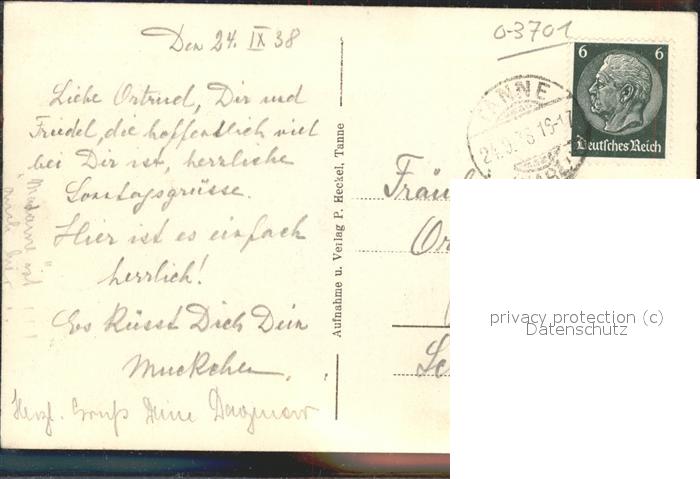 Den 24. IX 38
0-3701
6 6
Deutsches Reich
TANNE
24.9.38.16-17
Liebe Ortrud, Dir und
Friedel, die hoffentlich viel
bei Dir ist, herzliche
Sonntagsgrüsse.
Hier ist es einfach
herrlich!
Es küsst Dich Dein
Muckchen.
Herzl. Gruß Deine Dagmar
"Madame" ist
auch hier!
Aufnahme u. Verlag P. Heckel, Tanne
Fräul
Or
privacy protection (c)
Datenschutz